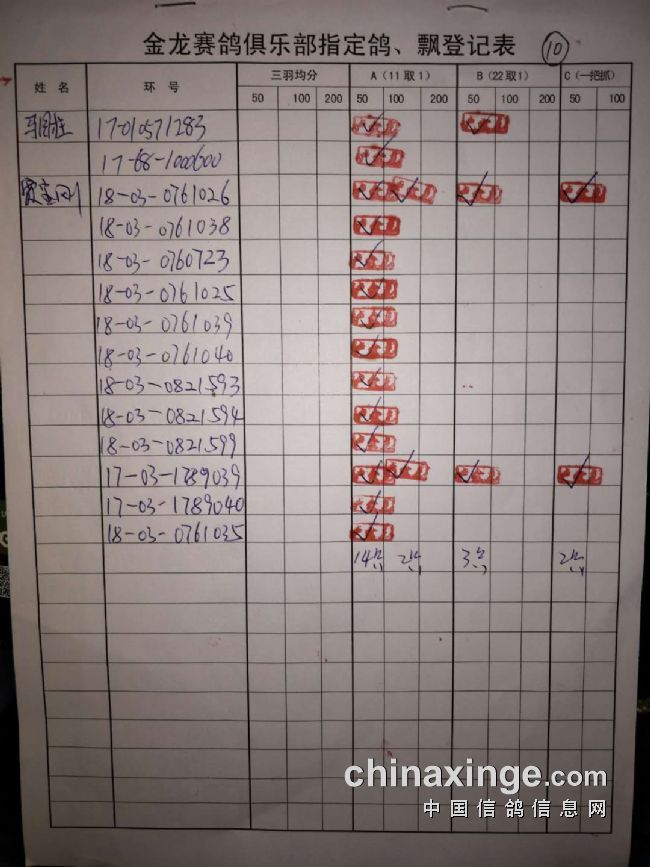 金龙赛鸽俱乐部指定鸽、飘登记表 10
姓名 环号 三羽均分 A（11取1） B（22取1） C（一把抓）
50 100 200 50 100 200 50 100 200 50 100
17-010571283
17-68-1000600
18-03-0761026
18-03-0761038
18-03-0760723
18-03-0761025
18-03-0761039
18-03-0761040
18-03-0821593
18-03-0821594
18-03-0821599
17-03-1789039
17-03-1789040
18-03-0761035
14 2 3 2
chinaxinge.com
中国信鸽信息网